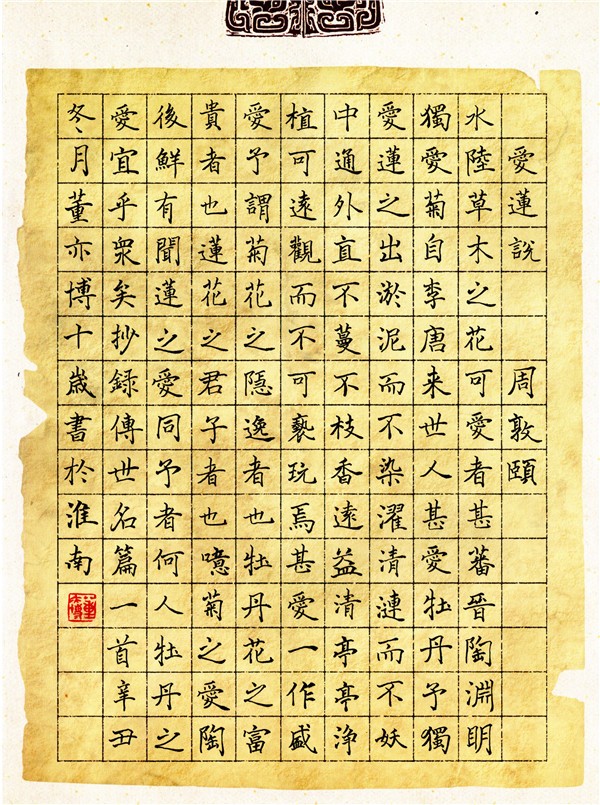 愛蓮說 周敦頤
水陸草木之花可愛者甚蕃晉陶淵明
獨愛菊自李唐来世人甚愛牡丹予獨
愛蓮之出淤泥而不染濯清漣而不妖
中通外直不蔓不枝香遠益清亭亭浄
植可遠觀而不可褻玩焉甚愛一作盛
愛予謂菊花之隱逸者也牡丹花之富
貴者也蓮花之君子者也噫菊之愛陶
後鮮有聞蓮之愛同予者何人牡丹之
愛宜乎衆矣抄録傳世名篇一首辛丑
冬月董亦博十歲書於淮南